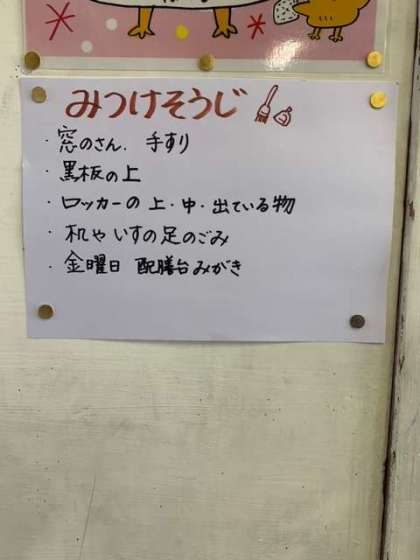 みつけそうじ
・窓のさん. 手すり
・黒板の上
・ロッカーの 上・中・出ている物
・机や いすの足のごみ
・金曜日 配膳台みがき